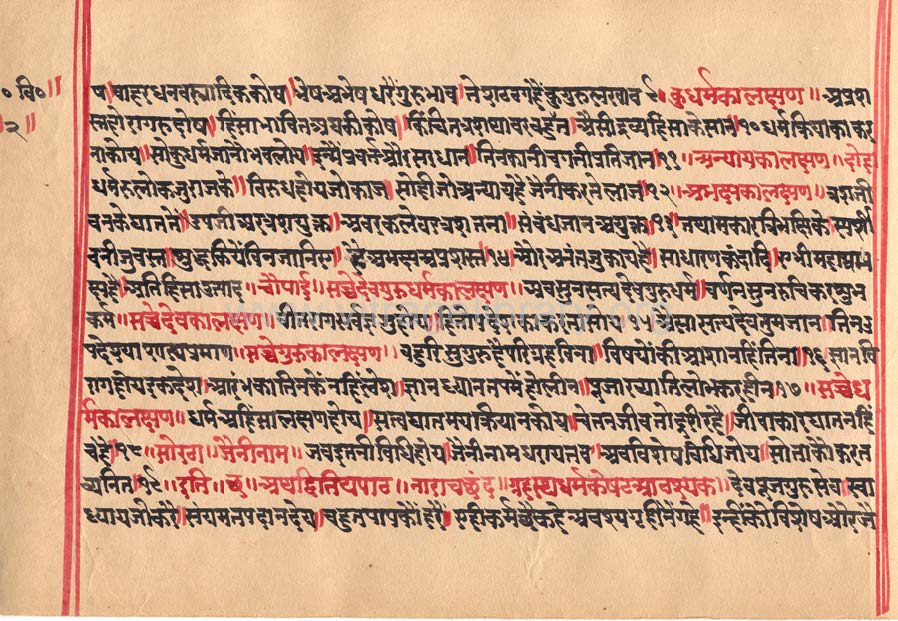 ०वि०॥ ष॥वाहरधनवस्त्रादिककोष॥भेषअभेषधरैंगुरुभाव॥तेपाठवगहैंकुगुरुलखाव९॥कुधर्मकालक्षण॥अप्रश
२॥ स्तहोरागरुदोष॥हिंसाभावितअघकीकोष॥किंचितप्रगट्यावरबहुत॥औसीद्रव्यहिंसाकेसात॥१०धर्मक्रियाकाकर
नाकोय॥सोकुधर्मजानौंभवलोय॥इन्मैंप्रवर्तऔरसाधान॥तिनकानीचगतीप्रतिजान॥११॥अन्यायकालक्षण॥दोहा
धर्मरुलोकनुराजके॥विरुधहोयजोकाज॥सोहीजोअन्यायहैजैनीकरतेलाज॥१२॥अभक्षकालक्षण॥त्रशजी
वनकेघाततें॥उपजीअरत्रशयुक्त॥अवरकलेवरत्रशतना॥संबंधजानअयुक्त॥१३॥
चनीजुवस्त॥शुद्धकियेंविनजानिस॥हैअभक्षअप्रशस्त॥१४॥औरअनंतजुकायहै॥साधारणकंदादि॥
अतिहिंसाउत्पाद॥चौपाई॥सच्चेदेवगुरुधर्मकालक्षण॥अवसुनसत्यदेवगुरुधर्म॥वर्णनसुनरुचिकारशुभ
कर्म॥सच्चेदेवकालक्षण॥वीतरागसर्वज्ञजुहोय॥हितउपदेशकाकर्त्तासोय॥१५॥औसासत्यदेवतुमजान॥तिनउ
पदेश्याप्रमाण॥सच्चेगुरुकालक्षण॥वहुरिसुगुरुहैपरिग्रहविना॥विषयोंकीआशानहिंतिना॥१६॥ज्ञानवि
रागहोयइकदेश॥आरंभकातिनकेंनहिंलेश॥ज्ञानध्यानतपमेंहोलीन॥पूजाख्यातिलोभकरहीन॥१७॥सच्चेध
र्मकालक्षण॥धर्मअहिंसालक्षणहोय॥सत्वघातमयक्रियानकोय॥चेतनजीव॥जीवाकारघातनहिं
चहै॥१८॥सोरठा॥जैनीनाम॥जवइतनीविधिहोय॥जैनीनामधरायतव॥अवविशेषविधिजोय॥सोतोकैकरत
व्यनित॥१९॥इति॥छ॥अथद्वितियपाठ॥नाराचछंद॥गृहस्थधर्मकेषटआवश्यक॥देवपूजगुरुसेव॥स्वा
ध्यायजोकरै॥संयमतपदानदेय॥वहुतपापकोंहरै॥एहीकर्मछैकहेअवश्यगृहीनेंगहे॥इन्हींकोविशेषऔरजै